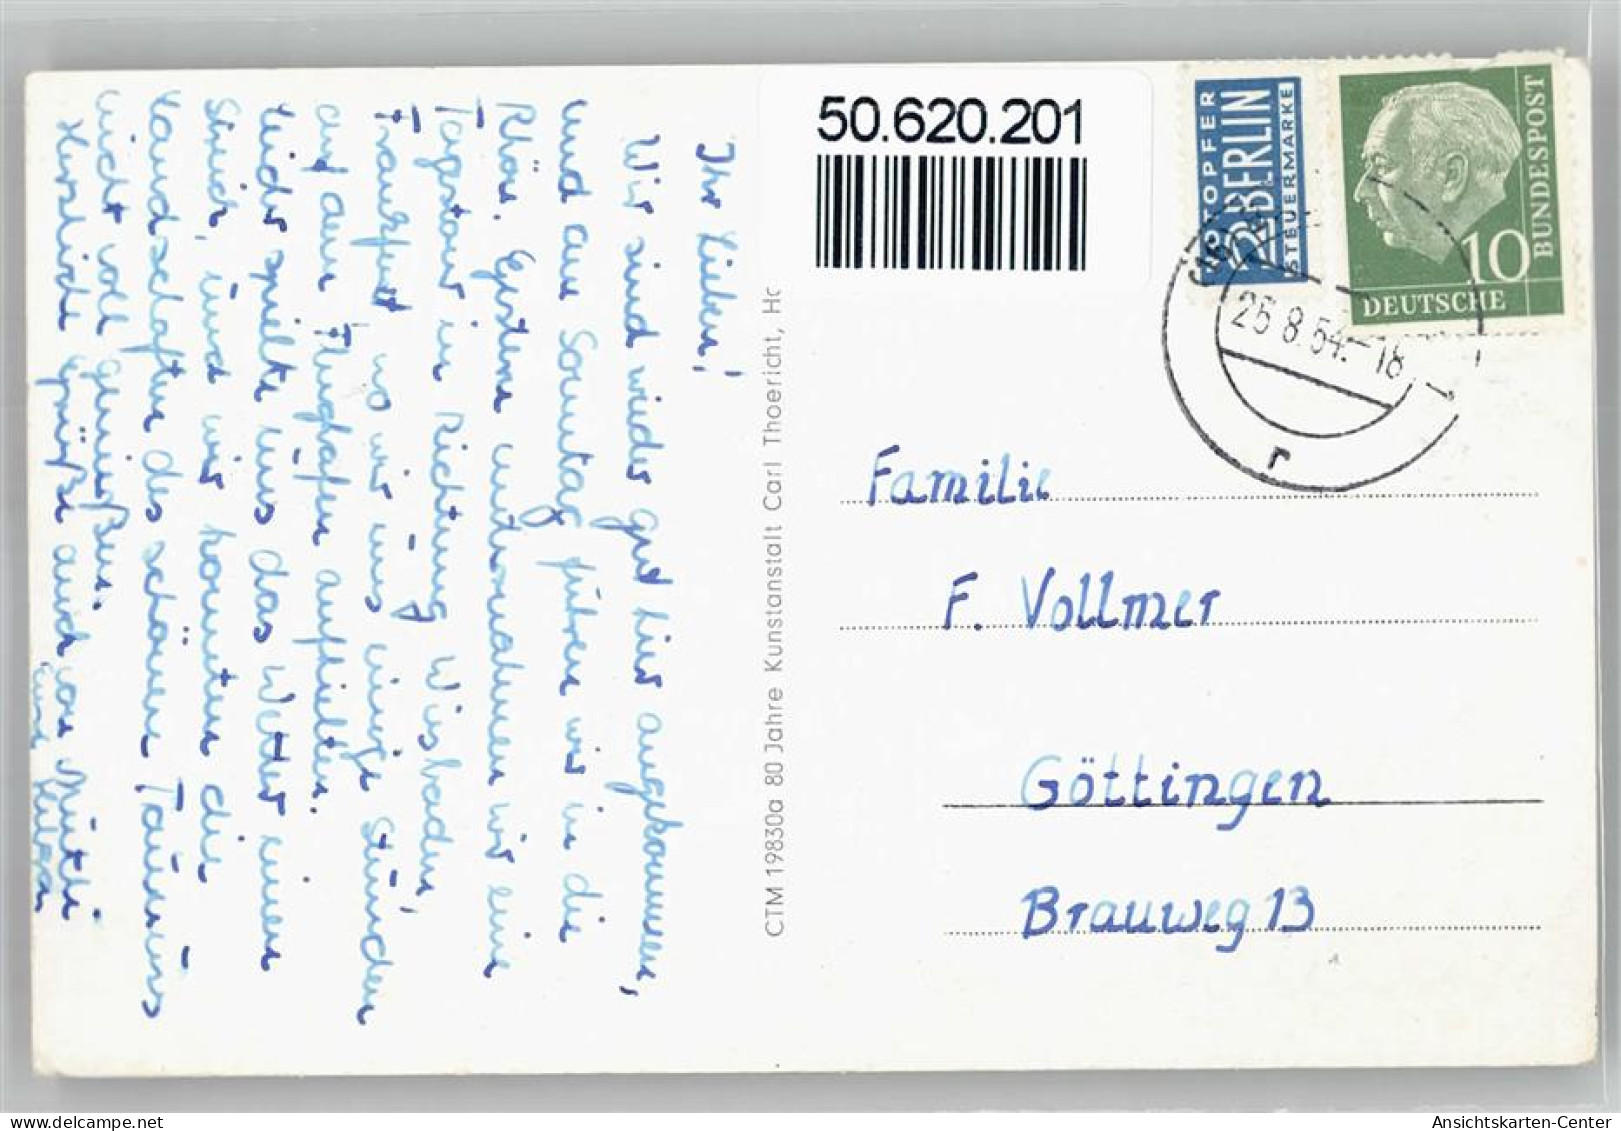 Ihr Lieben!
Wir sind wieder gut hier angekommen,
und am Sonntag führen wir in die
Rhön. Gestern unternahmen wir eine
Tagestour in Richtung Wiesbaden,
Frankfurt, wo wir uns einige Stunden
auf dem Flughafen aufhielten.
Leider spielte uns das Wetter einen
Streich, und wir konnten die
Landschaften des schönen Taunus
nicht voll genießen.
Herzliche Grüße auch von Mutti
Eure
CTM 19830a 80 Jahre Kunstanstalt Carl Thoericht, Ho
50.620.201
NOTOPFER
2 BERLIN
STEUERMARKE
10
DEUTSCHE
BUNDESPOST
25.8.54.-18
r
Familie
F. Vollmer
Göttingen
Brauweg 13
Ansichtskarten-Center